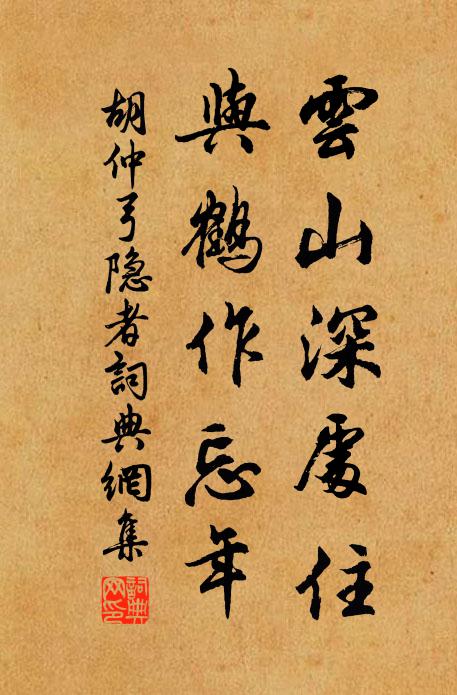 雲山深處住
與鶴作忘年
胡仲弓隐者詞典網集
詞典網印